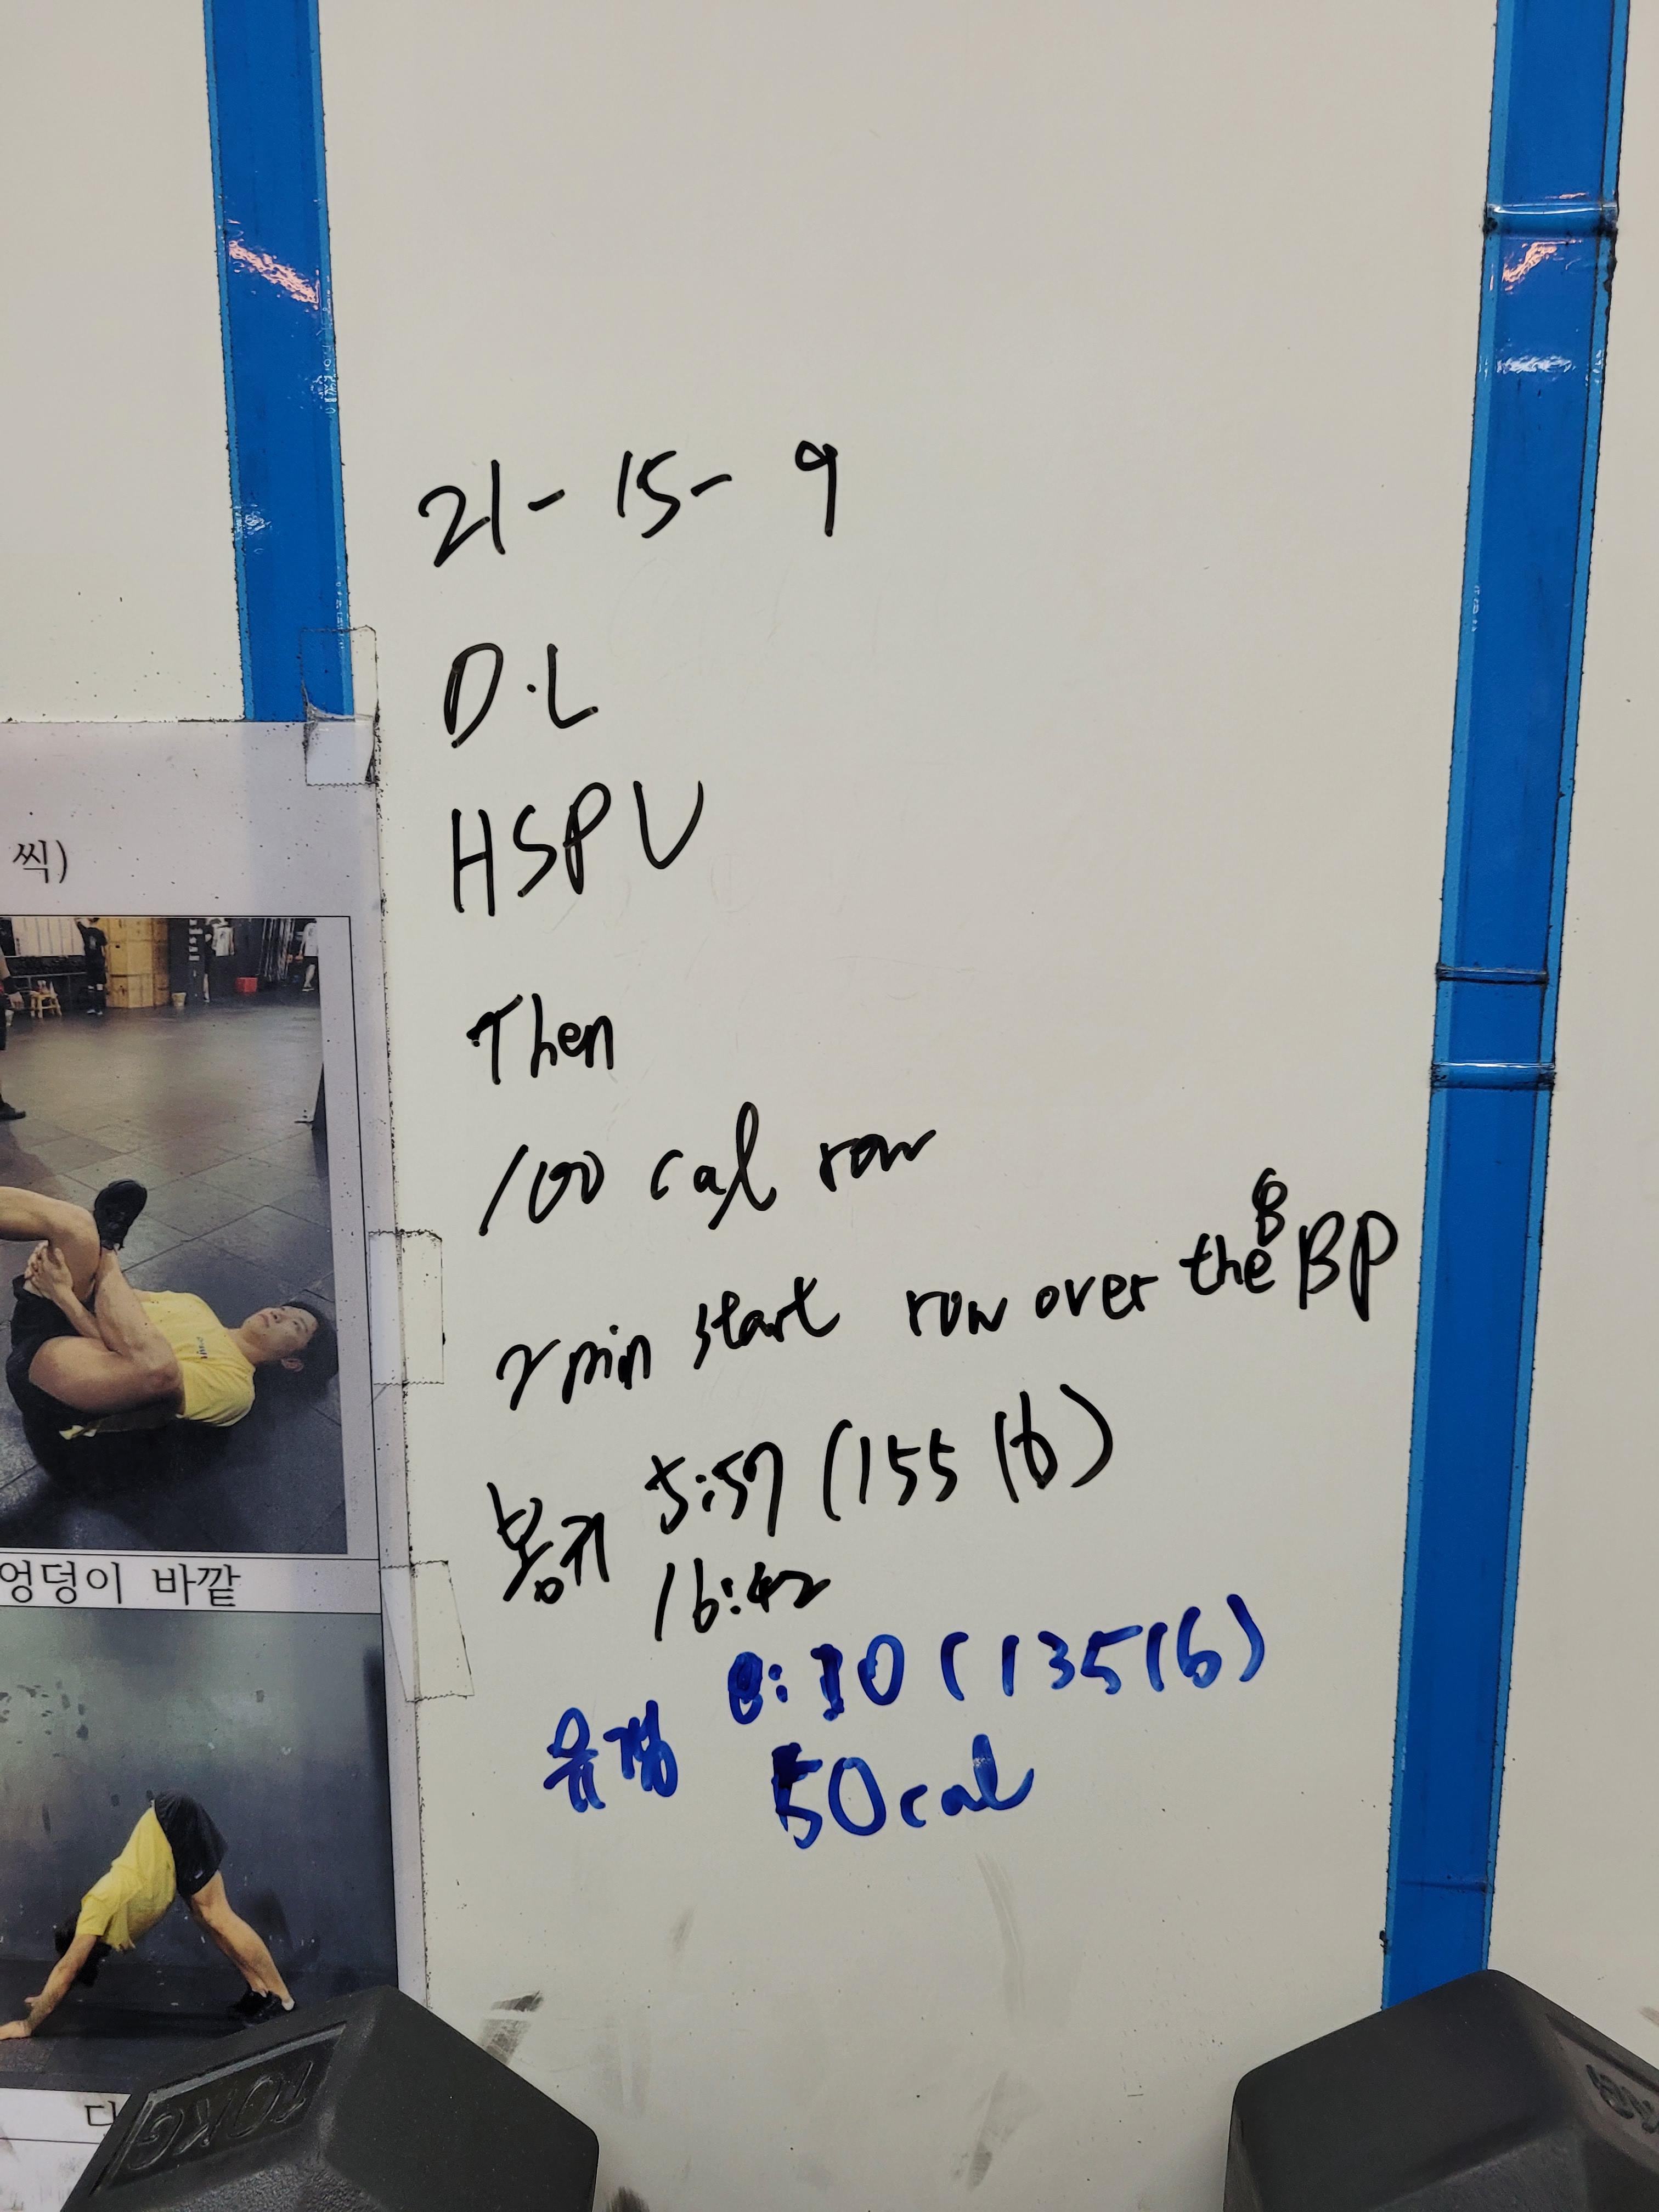 21-15-9
D.L
HSPU
Then
100 cal row
2min start row over the 8 BP
봉귀 5:57 (155 lb)
16:42
8:30 (135 lb)
50cal
씩)
엉덩이 바깥
10KG